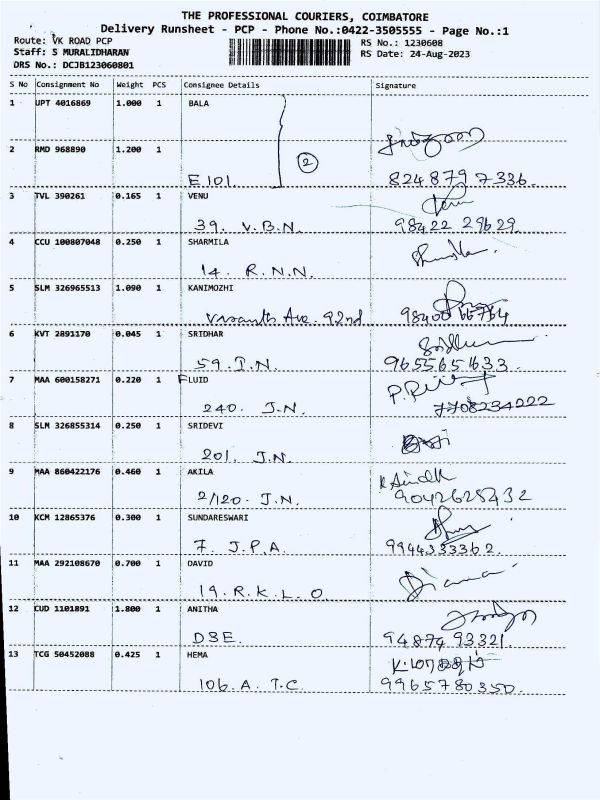 THE PROFESSIONAL COURIERS, COIMBATORE
Delivery Runsheet - PCP - Phone No.:0422-3505555 - Page No.:1
Route: VK ROAD PCP RS No.: 1230608
Staff: S MURALIDHARAN RS Date: 24-Aug-2023
DRS No.: DCJB123060801
S No Consignment No Weight PCS Consignee Details Signature
1 UPT 4016869 1.000 1 BALA
2 RMD 968890 1.200 1 2
E 101. 824 879 7336.
3 TVL 390261 0.165 1 VENU
39. V.B.N. 98422 29629
4 CCU 100807048 0.250 1 SHARMILA
14. R.N.N.
5 SLM 326965513 1.090 1 KANIMOZHI
Vasanth Ave. 92nd
6 KVT 2891170 0.045 1 SRIDHAR
59. I.N. 9655651633.
7 MAA 600158271 0.220 1 FLUID
240. J.N. 7708234222
8 SLM 326855314 0.250 1 SRIDEVI
201. J.N.
9 MAA 860422176 0.460 1 AKILA
2/120. J.N. 9042625432
10 KCM 12865376 0.300 1 SUNDARESWARI
7. J.P.A. 9944333362.
11 MAA 292108670 0.700 1 DAVID
19. R.K.L.O
12 CUD 1101891 1.800 1 ANITHA
DSE. 94874 93321.
13 TCG 50452088 0.425 1 HEMA
106. A. T.C. 9965780350.